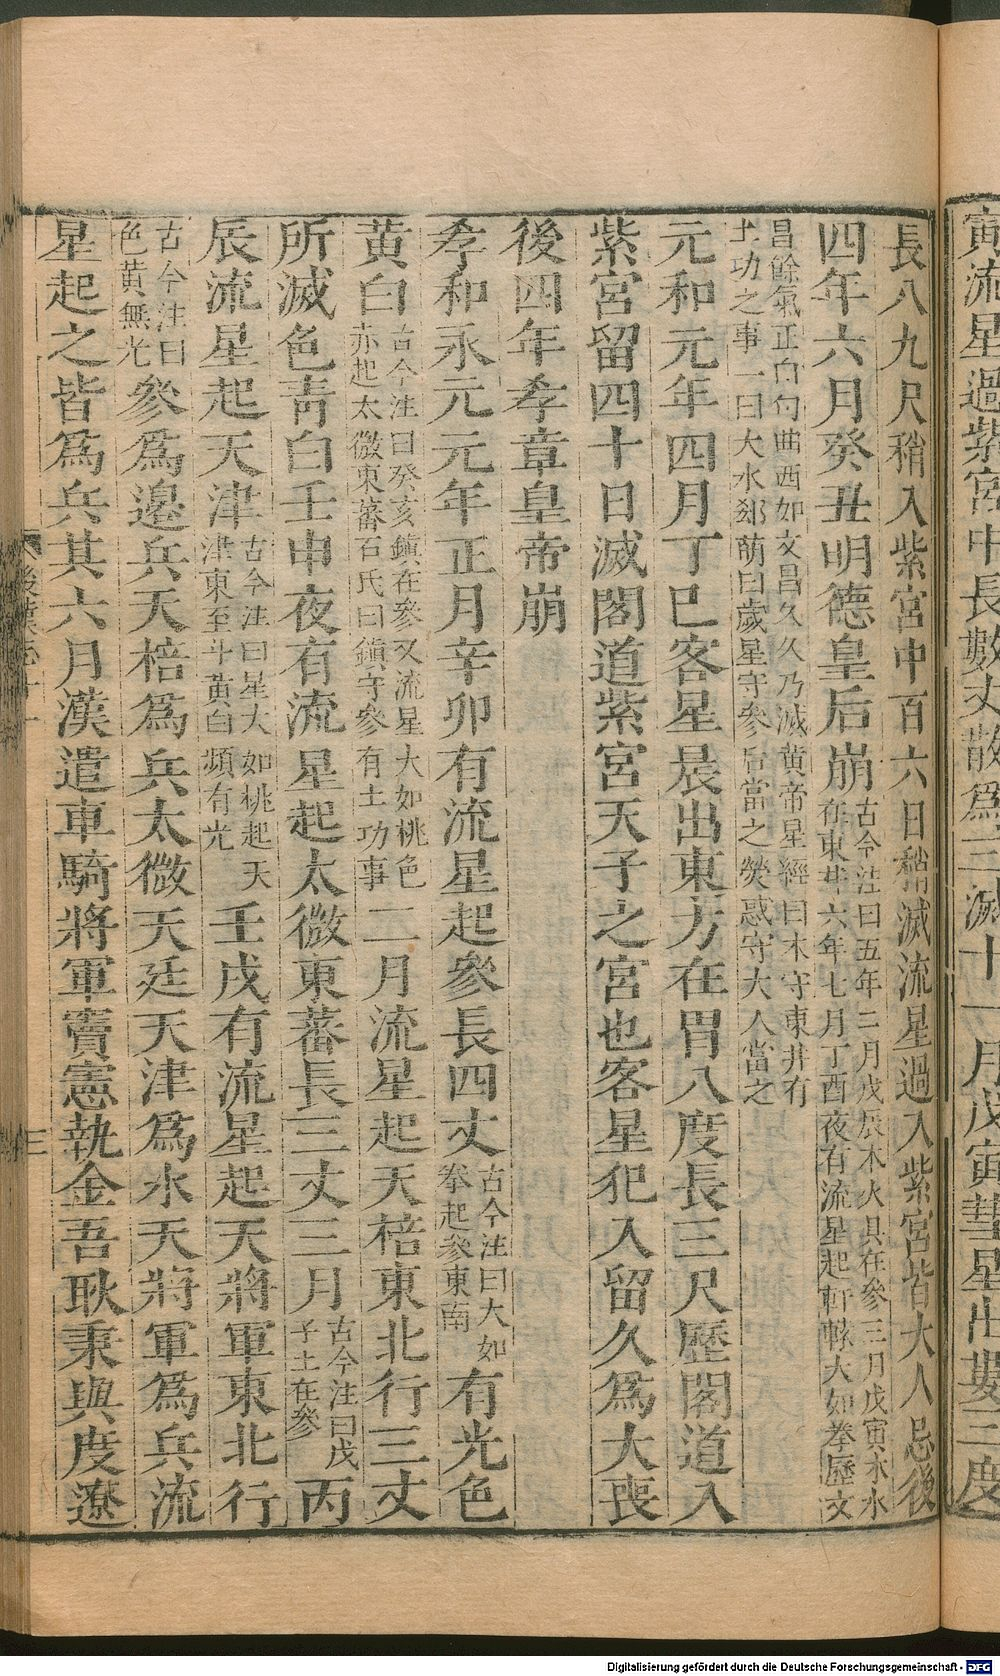 寅流星過紫宮中長數丈散爲三滅十一月戊寅彗星出婁三度
長八九尺稍入紫宮中百六日稍滅流星過入紫宮皆大人忌後
四年六月癸丑明德皇后崩古今注曰五年二月戊辰木火具在參三月戊寅木水在東井六年七月丁酉夜有流星起軒轅大如拳歷文
昌餘氣正白句曲西如文昌久久乃滅黃帝星經曰木守東井有土功之事一曰大水郄萌曰歲星守參后當之熒惑守大人當之
元和元年四月丁巳客星晨出東方在胃八度長三尺歷閣道入
紫宮留四十日滅閣道紫宮天子之宮也客星犯入留久爲大喪
後四年孝章皇帝崩
孝和永元元年正月辛卯有流星起參長四丈古今注曰大如拳起參東南有光色
黃白古今注曰癸亥鎭在參又流星大如桃色赤起太微東蕃石氏曰鎭守參有土功事二月流星起天棓東北行三丈
所滅色靑白壬申夜有流星起太微東蕃長三丈三月古今注曰戊子土在參丙
辰流星起天津古今注曰星大如桃起天津東至斗黃白頻有光壬戌有流星起天將軍東北行
古今注曰色黃無光參爲邊兵天棓爲兵太微天廷天津爲水天將軍爲兵流
星起之皆爲兵其六月漢遣車騎將軍竇憲執金吾耿秉與度遼
三
Digitalisierung gefördert durch die Deutsche Forschungsgemeinschaft - DFG